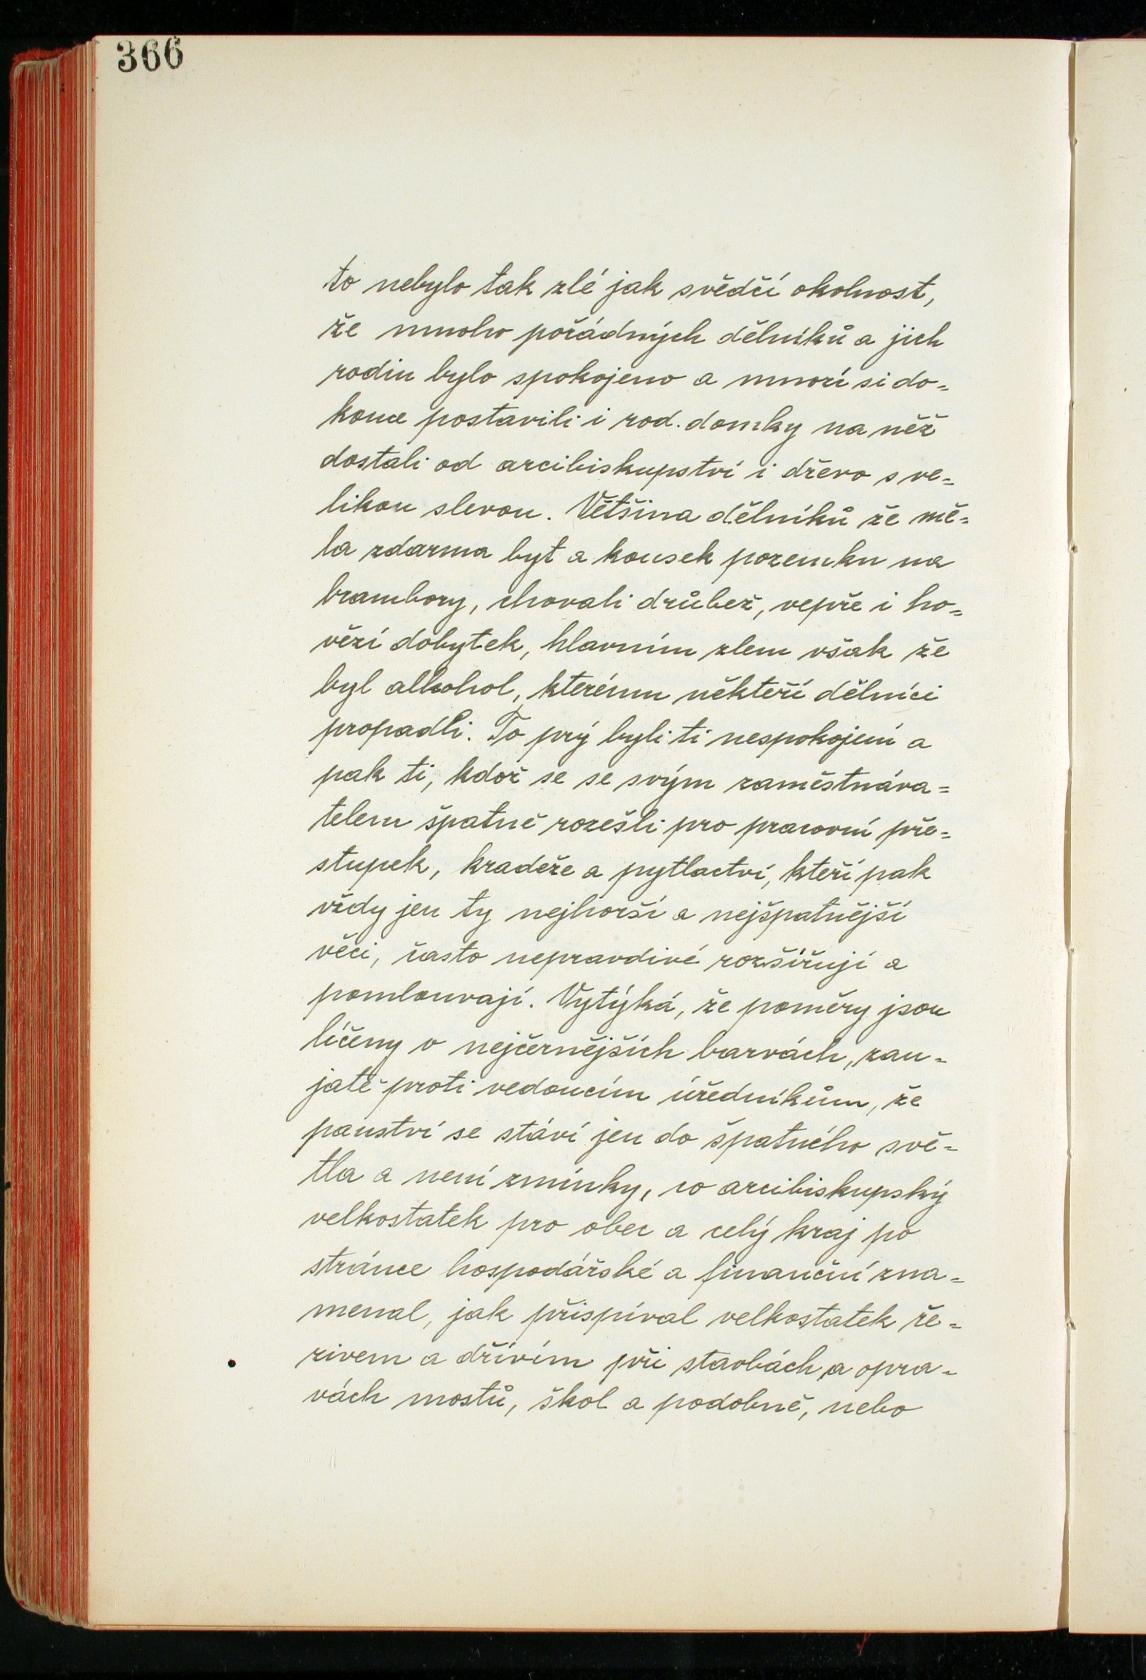 366
to nebylo tak zlé jak svědčí okolnost,
že mnoho pořádných dělníků a jich
rodin bylo spokojeno a mnozí si do-
konce postavili i rod. domky na něž
dostali od arcibiskupství i dřevo s ve-
likou slevou. Většina dělníků že mě-
la zdarma byt a kousek pozemku na
brambory, chovali drůbež, vepře i ho-
vězí dobytek, hlavním zlem však že
byl alkohol, kterému někteří dělníci
propadli. To prý byli ti nespokojení a
pak ti, kdož se se svým zaměstnáva-
telem špatně rozešli pro pracovní pře-
stupek, kradeže a pytlactví, kteří pak
vždy jen ty nejhorší a nejšpatnější
věci, často nepravdivé rozšiřují a
pomlouvají. Vytýká, že poměry jsou
líčeny v nejčernějších barvách, zau-
jatě proti vedoucím úředníkům, že
panství se stáví jen do špatného svě-
tla a není zmínky, co arcibiskupský
velkostatek pro obec a celý kraj po
stránce hospodářské a finanční zna-
menal, jak přispíval velkostatek ře-
zivem a dřívím při stavbách a opra-
vách mostů, škol a podobně, nebo